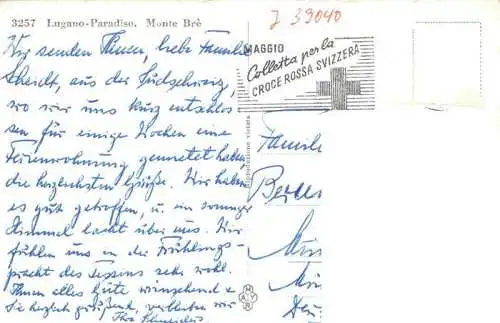 3257 Lugano-Paradiso. Monte Brè
J 39040
MAGGIO
Colletta per la
CROCE ROSSA SVIZZERA
Wir senden Ihnen, liebe Familie
Scheidt, aus der Südschweiz,
wo wir uns kurz entschlos
sen für einige Wochen eine
Ferienwohnung gemietet haben
die herzlichsten Grüße. Wir haben
es gut getroffen, u. ein sonniger
Himmel lacht über uns. Wir
fühlen uns in der Frühlings-
pracht des Tessins sehr wohl.
Ihnen alles Gute wünschend &
Sie herzlich grüßend, verbleiben wir
Ihre
Riproduzione vietata
Familie
MAYR